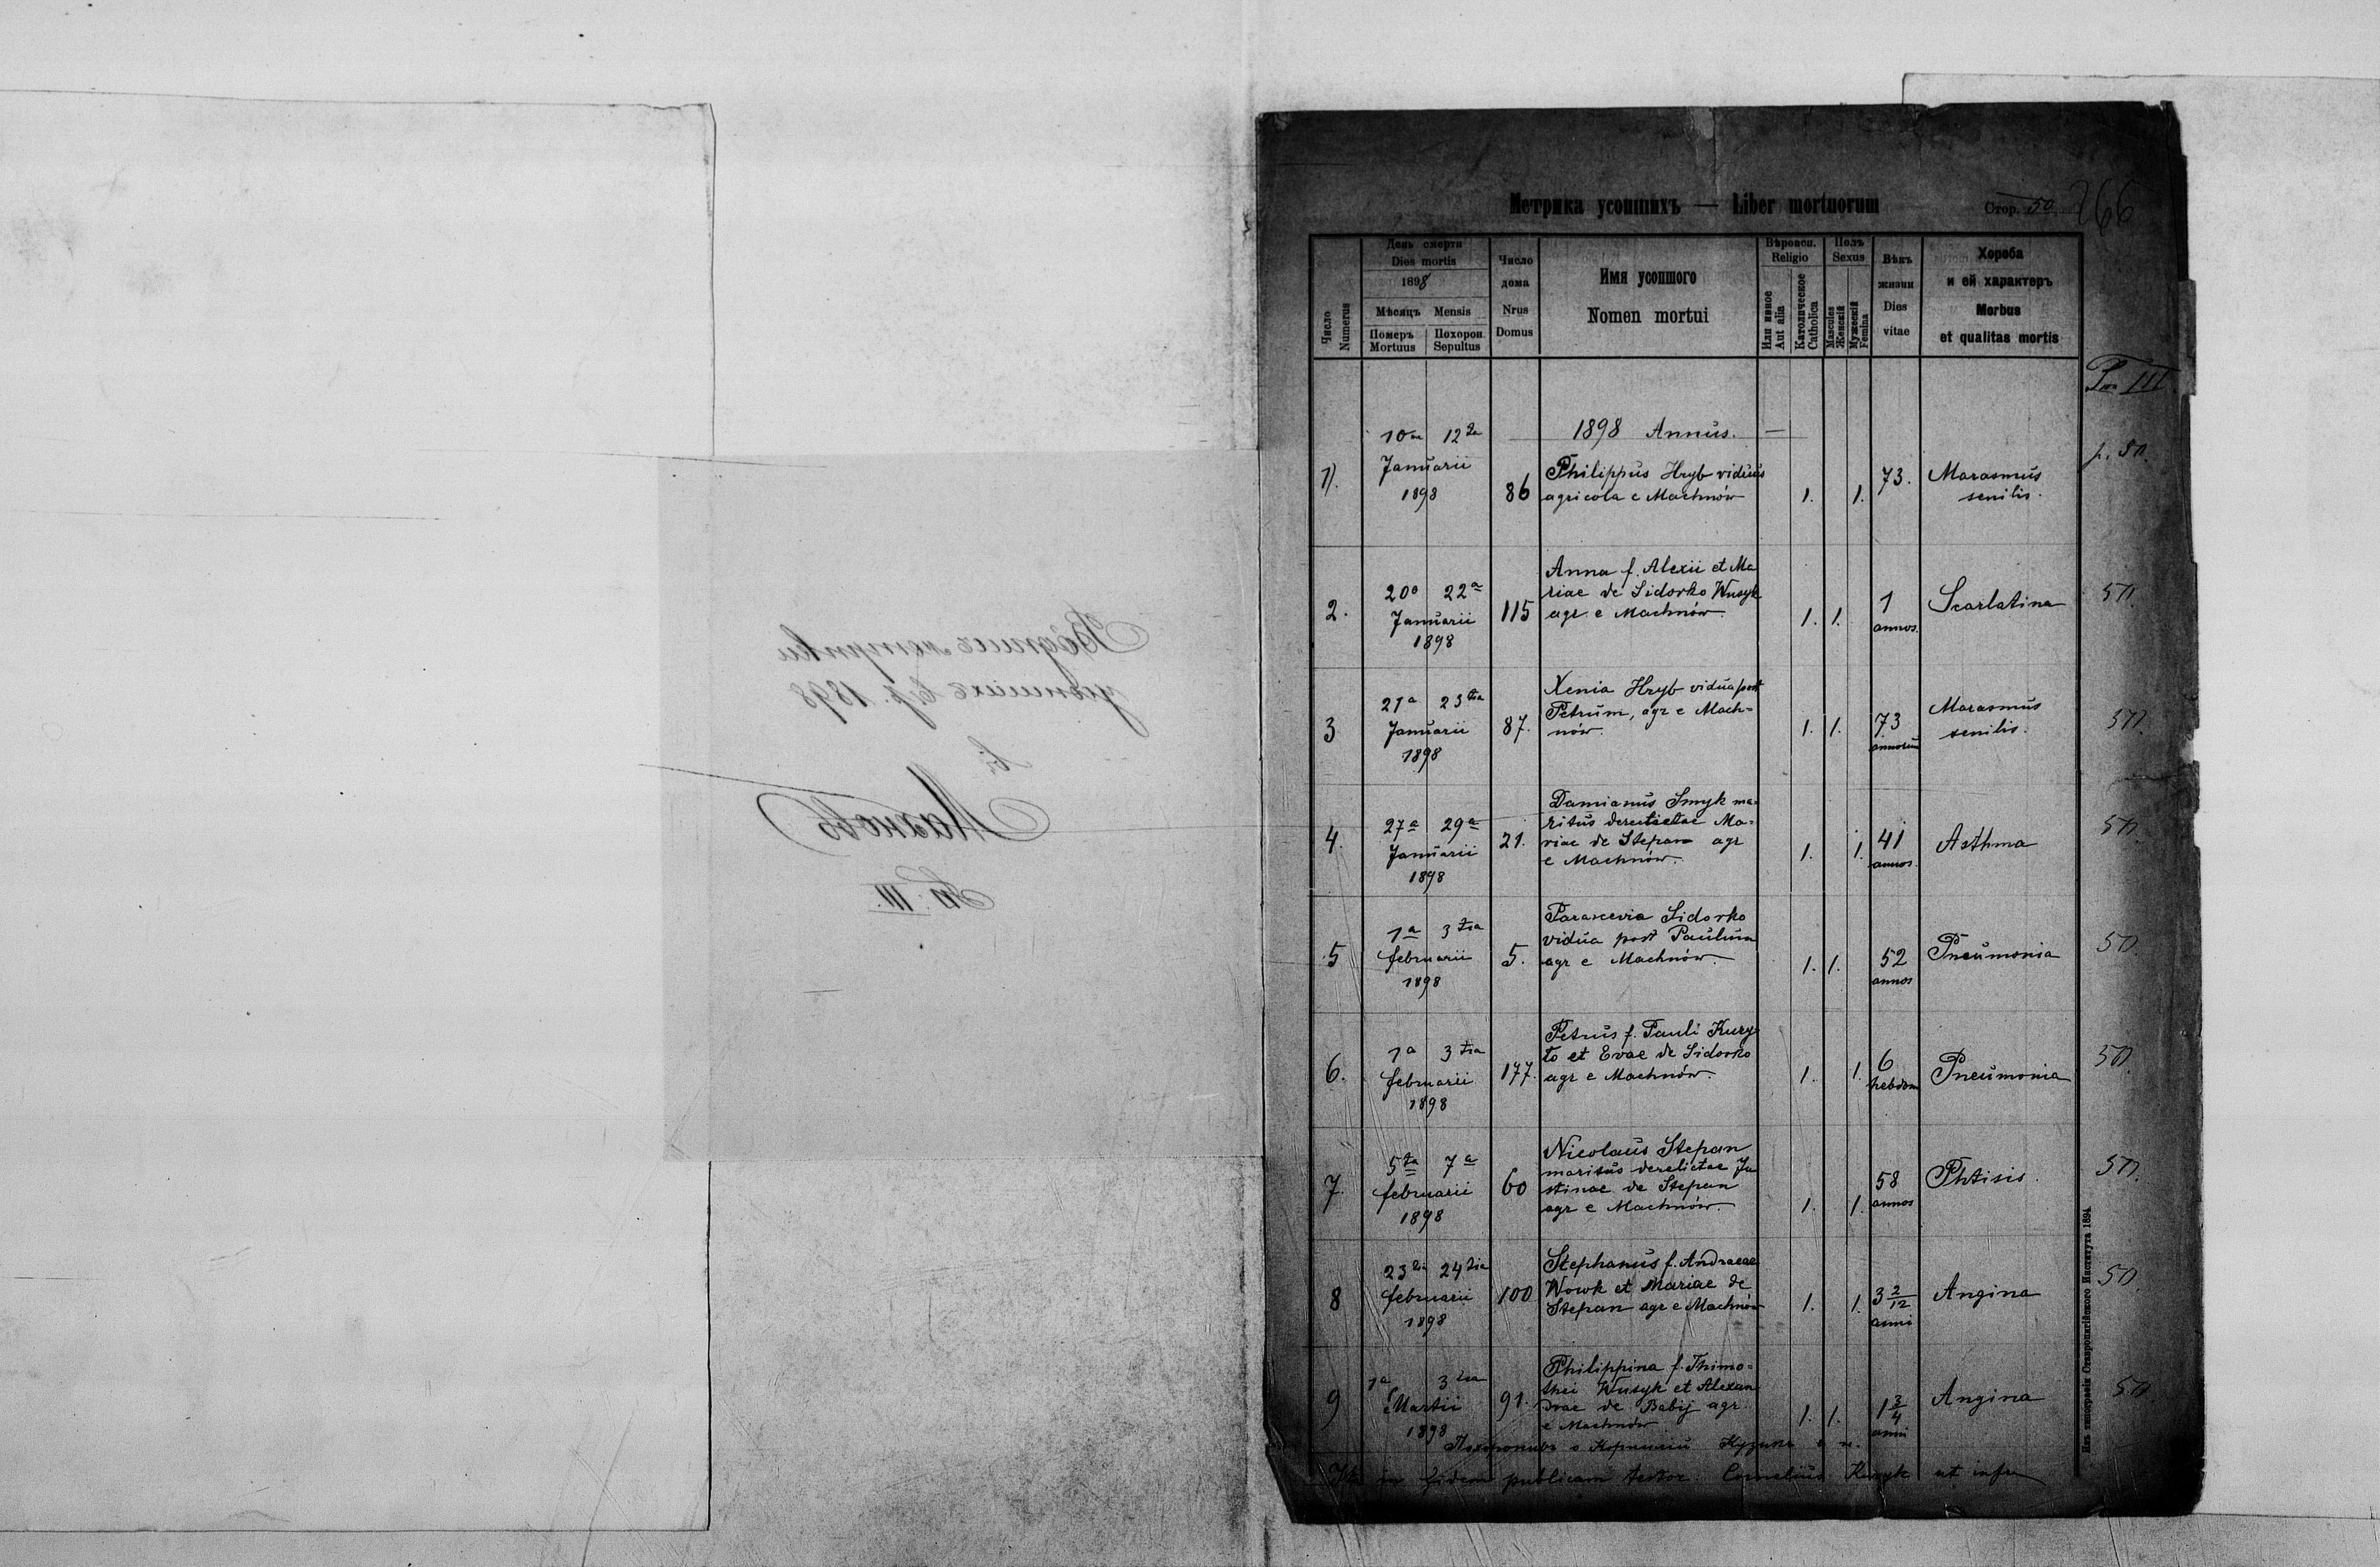 Метрика усопшихъ — Liber mortuorum
Стор. 50
266
Число
Numerus
День смерти
Dies mortis
1898
Мѣсяць Mensis
Померъ Mortuus
Похорон. Sepultus
Число дома
Nrus Domus
Имя усопшого
Nomen mortui
Вѣроиси.
Religio
Или иное
Aut alia
Католическое
Catholica
Полъ
Sexus
Mascules
Женскій
Мужескій
Femina
Вѣкъ жизни
Dies vitae
Хороба
и ей характеръ
Morbus
et qualitas mortis
1898 Annus.
1). 10 12
Januarii
1898
86
Philippus Hryb viduus
agricola e Machnów
1. 1.
73.
Marasmus
senilis.
2. 20 22a
Januarii
1898
115
Anna f. Alexii et Ma
riae de Sidorko Wusyk
agr. e Machnów.
1. 1.
1
annos.
Scarlatina
3 21a 23tia
Januarii
1898
87.
Xenia Hryb vidua post
Petrum, agr e Mach=
nów.
1. 1.
73
annorum
Marasmus
senilis.
4. 27a 29a
Januarii
1898
21.
Damianus Smyk ma=
ritus derelictae Ma=
riae de Stepan agr
e Machnów.
1. 1.
41
annos.
Asthma
5 1a 3tia
februarii
1898
5.
Parascevia Sidorko
vidua post Paulum
agr e Machnów.
1. 1.
52
annos
Pneumonia
6. 1a 3tia
februarii
1898
177.
Petrus f. Pauli Kury
to et Evae de Sidorko
agr e Machnów.
1. 1.
6
hebdom
Pneumonia
7. 5ta 7a
februarii
1898
60
Nicolaus Stepan
maritus derelictae Ju
stinae de Stepan
agr e Machnów.
1. 1.
58
annos
Phtisis.
8 23tia 24tia
februarii
1898
100
Stephanus f. Andraeae
Wowk et Mariae de
Stepan agr e Machnów
1. 1.
3 2/12
anni
Angina
9 1a 3tia
Martii
1898
91.
Philippina f. Thimo=
thei Wusyk et Alexan
drae de Babij agr
e Machnów
1. 1.
1 3/4
anni
Angina
in fidem publicam testor. Cornelius Kuzyk ut infra
Изъ типографіи Ставропигійского Института 1894.
усопшихъ
1898
въ
Махновъ
III.